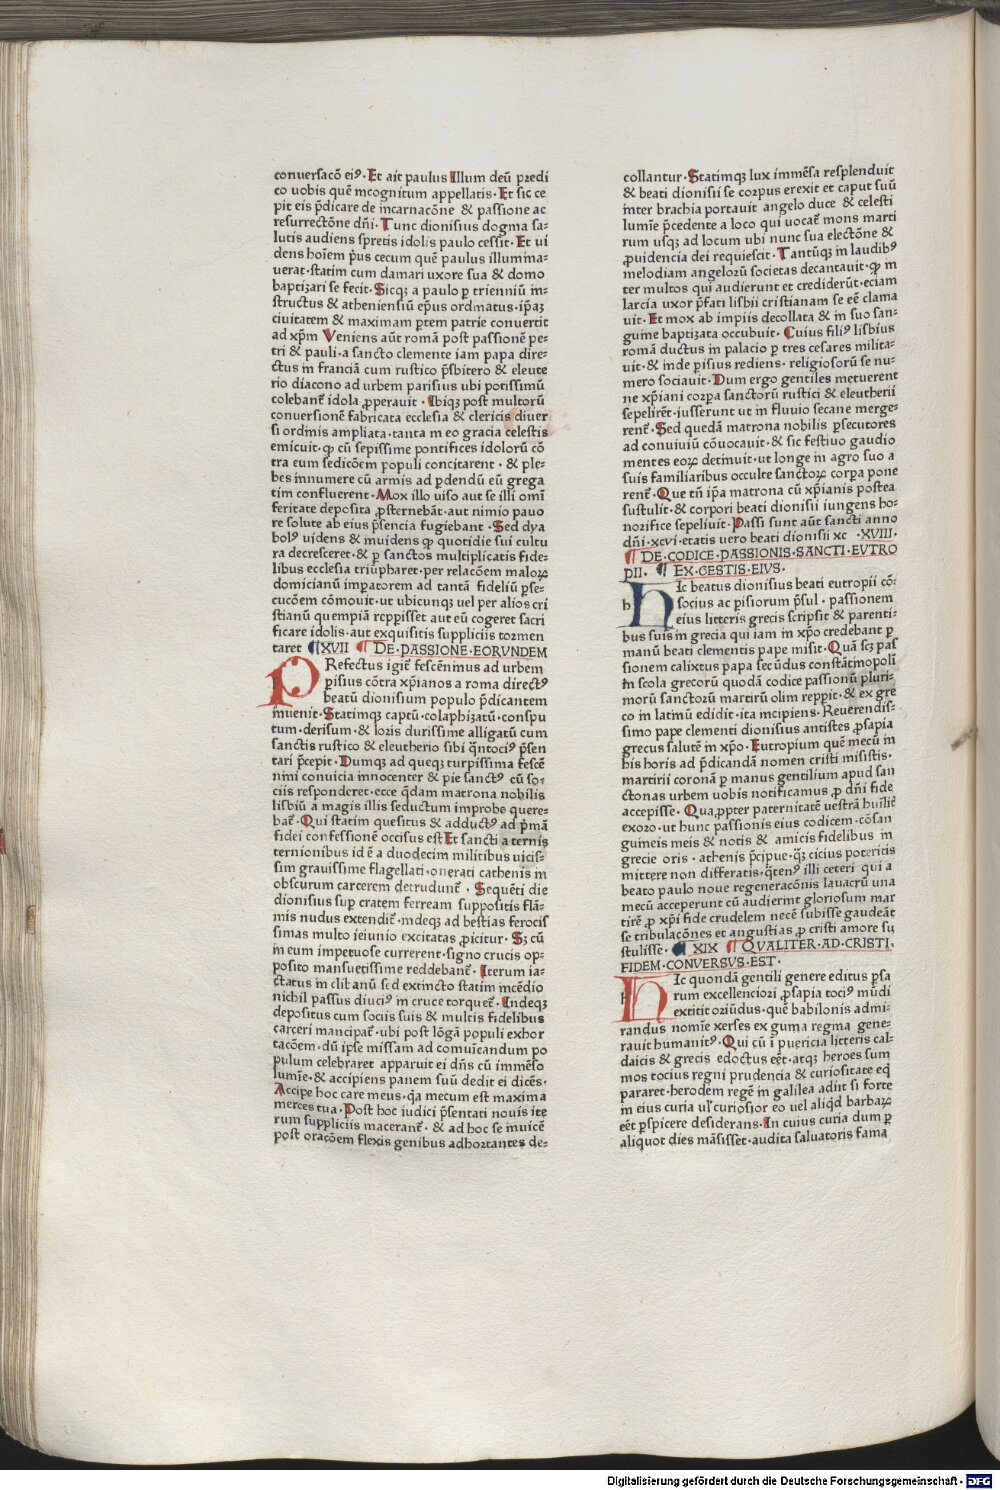 conuersacõ eiꝰ· Et ait paulus Illum deū predi
co uobis quē incognitum appellatis· Et sic ce
pit eis p̄dicare de incarnacōne & passione ac
resurrectōne dñi· Tunc dionisius dogma sa-
lutis audiens spretis idolis paulo cessit· Et ui
dens hoīem p̄us cecum quē paulus illumina-
uerat· statim cum damari uxore sua & domo
baptizari se fecit· Sicqꝫ a paulo ꝑ trienniū in-
structus & atheniensiū ep̄us ordinatus· ip̄aꝫ
ciuitatem & maximam ꝑtem patrie conuertit
ad xp̄m Veniens aūt romā post passionē pe-
tri & pauli· a sancto clemente iam papa dire-
ctus in franciā cum rustico p̄sbitero & eleute
rio diacono ad urbem parisius ubi potissimū
colebant̄ idola ꝓperauit · Ibiqꝫ post multorū
conuersionē fabricata ecclesia & clericis diuer
si ordinis ampliata· tanta in eo gracia celestis
emicuit· ꝙ cū sepissime pontifices idolorū cō
tra eum sedicōem populi concitarent · & ple-
bes innumere cū armis ad ꝑdendū eū grega
tim confluerent· Mox illo uiso aut se illi omī
feritate deposita ꝓsternebāt· aut nimio pauo
re solute ab eius p̄sencia fugiebant · Sed dya
bolꝰ uidens & inuidens ꝙ quotidie sui cultu
ra decresceret· & ꝑ sanctos multiplicatis fide-
libus ecclesia triūpharet· per relacōem maloꝝ
domicianū imꝑatorem ad tantā fideliū ꝑse-
cucōem cōmouit· ut ubicunqꝫ uel per alios cri
stianū quempiā repꝑisset aut eū cogeret sacri
ficare idolis· aut exquisitis suppliciis tormen
taret ¶XVII ¶ DE·PASSIONE·EORVNDEM
PRefectus igit̄ fescēninus ad urbem
ꝑisius cōtra xp̄ianos a roma directꝰ
beatū dionisium populo p̄dicantem
inuenit· Statimqꝫ captū· colaphizatū· conspu
tum· derisum· & loris durissime alligatū cum
sanctis rustico & eleutherio sibi q̄ntociꝰ p̄sen
tari p̄cepit· Dumqꝫ ad queqꝫ turpissima fescē
nini conuicia innocenter & pie sanctꝰ cū so-
ciis responderet· ecce q̄dam matrona nobilis
lisbiū a magis illis seductum improbe quere-
bat̄· Qui statim quesitus & adductꝰ ad p̄mā
fidei confessionē occisus est· Et sancti a ternis
ternionibus id ē a duodecim militibus uicis-
sim grauissime flagellati· onerati cathenis in
obscurum carcerem detrudunt̄ · Sequēti die
dionisius suꝑ cratem ferream suppositis flā-
mis nudus extendit̄· indeqꝫ ad bestias ferocis
simas multo ieiunio excitatas ꝓicitur· Sꝫ cū
in eum impetuose currerent· signo crucis op-
posito mansuetissime reddebant̄· Iterum ia-
ctatus in clibanū sed extincto statim incēdio
nichil passus diuciꝰ in cruce torquet̄· Indeqꝫ
depositus cum sociis suis & multis fidelibus
carceri mancipat̄· ubi post lōgā populi exhor
tacōem· dū ipse missam ad comuīcandum po
pulum celebraret apparuit ei dñs cū immēso
lumīe· & accipiens panem suū dedit ei dicēs·
Accipe hoc care meus· q̄a mecum est maxima
merces tua· Post hoc iudici p̄sentati nouis ite
rum suppliciis macerant̄· & ad hoc se inuicē
post oracōem flexis genibus adhortantes de-
collantur· Statimqꝫ lux immēsa resplenduit
& beati dionisii se corpus erexit et caput suū
inter brachia portauit angelo duce & celesti
lumīe p̄cedente a loco qui uocat̄ mons marti
rum usqꝫ ad locum ubi nunc sua electōne &
ꝓuidencia dei requiescit· Tantūqꝫ in laudibꝰ
melodiam angelorū societas decantauit· ꝙ in
ter multos qui audierunt et crediderūt· eciam
larcia uxor p̄fati lisbii cristianam se eē clama
uit· Et mox ab impiis decollata & in suo san-
guine baptizata occubuit· Cuius filiꝰ lisbius
romā ductus in palacio ꝑ tres cesares milita-
uit· & inde ꝑisius rediens· religiosorū se nu-
mero sociauit· Dum ergo gentiles metuerent
ne xp̄iani corpa sanctorū rustici & eleutherii
sepelirēt· iusserunt ut in fluuio secane merge-
rent̄· Sed quedā matrona nobilis ꝑsecutores
ad conuiuiū cōuocauit· & sic festiuo gaudio
mentes eoꝝ detinuit· ut longe in agro suo a
suis familiaribus occulte sanctoꝝ corꝑa pone
rent̄· Que tñ ip̄a matrona cū xp̄ianis postea
sustulit· & corpori beati dionisii iungens ho-
norifice sepeliuit· Passi sunt aūt sancti anno
dñi· xcvi· etatis uero beati dionisii xc ·XVIII·
¶ DE·CODICE·PASSIONIS·SANCTI·EVTRO
PII· ¶ EX·GESTIS·EIVS·
h HIc beatus dionisius beati eutropii cō-
socius ac pisiorum p̄sul · passionem
eius litteris grecis scripsit & parenti-
bus suis in grecia qui iam in xp̄o credebant ꝑ
manū beati clementis pape misit· Quā scꝫ pas
sionem calixtus papa secūdus constātinopoli
in scola grecorū quodā codice passionū pluri-
morū sanctorū martirū olim repꝑit· & ex gre
co in latinū edidit· ita incipiens· Reuerendis-
simo pape clementi dionisius antistes ꝓsapia
grecus salutē in xp̄o· Eutropium quē mecū in
his horis ad p̄dicandā nomen cristi misistis·
martirii coronā ꝑ manus gentilium apud san
ctonas urbem uobis notificamus ꝓ dñi fide
accepisse· Quaꝓpter paternitatē uestrā huīlit̄
exoro· ut hunc passionis eius codicem· cōsan
guineis meis & notis & amicis fidelibus in
grecie oris · athenis p̄cipue· qꝫ cicius poteritis
mittere non differatis· q̄tenꝰ illi ceteri qui a
beato paulo noue regeneracōnis lauacrū una
mecū acceperunt cū audierint gloriosum mar
tirē ꝓ xp̄i fide crudelem necē subisse gaudeāt
se tribulacōnes et angustias ꝓ cristi amore su
stulisse· ¶ XIX ¶ QVALITER·AD·CRISTI·
FIDEM·CONVERSVS·EST·
h HIc quondā gentili genere editus ꝑsa
rum excellenciori ꝓsapia tociꝰ mūdi
extitit oriūdus· quē babilonis admi-
randus nomīe xerses ex guina regina gene-
rauit humanitꝰ· Qui cū ī puericia litteris cal-
daicis & grecis edoctus eēt· atqꝫ heroes sum
mos tocius regni prudencia & curiositate eq̄
pararet· herodem regē in galilea adiit si forte
in eius curia ul' curiosior eo uel aliq̄d barbaꝝ
eēt ꝑspicere desiderans· In cuius curia dum ꝑ
aliquot dies māsisset· audita saluatoris fama
Digitalisierung gefördert durch die Deutsche Forschungsgemeinschaft - DFG